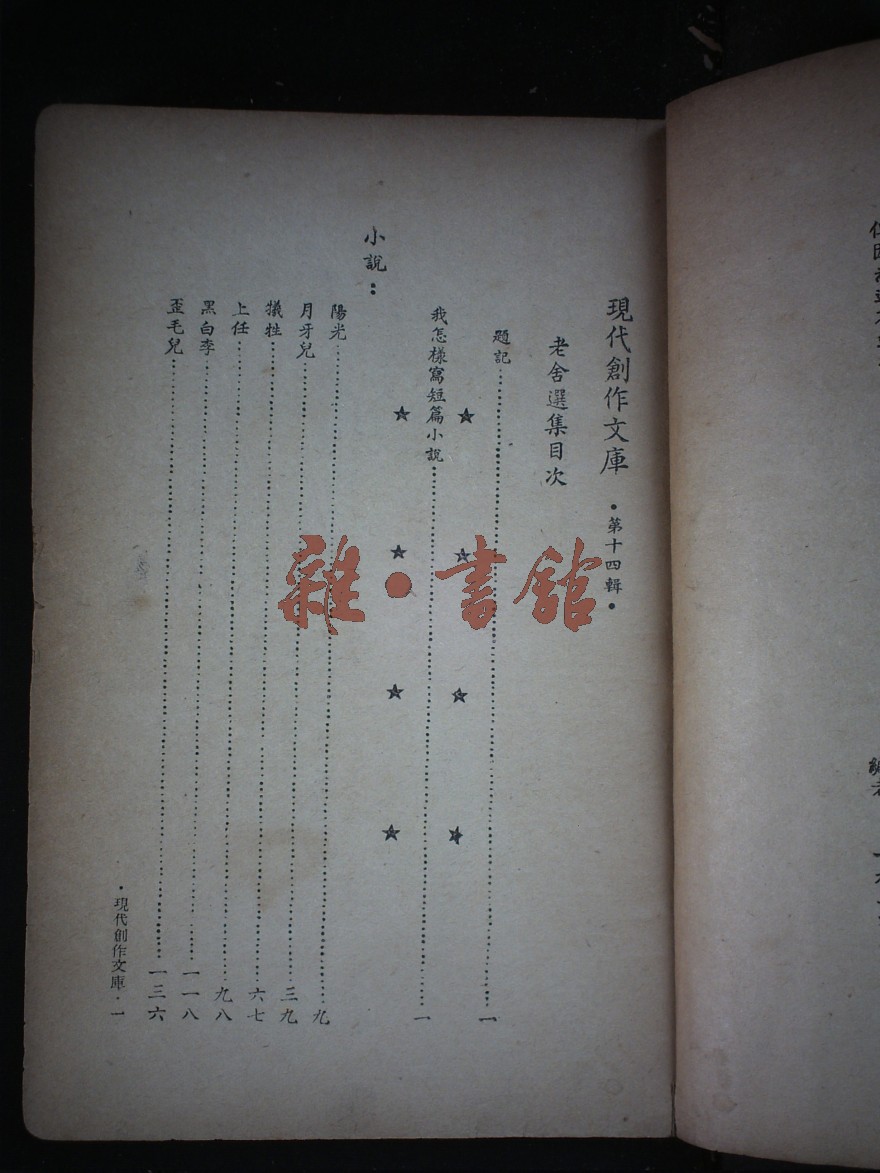 現代創作文庫 •第十四輯•
老舍選集目次
題記……一
★ ★ ★ ★
我怎樣寫短篇小說……一
★ ★ ★ ★
小說：
陽光……九
月牙兒……三九
犧牲……六七
上任……九八
黑白李……一一八
歪毛兒……一三六
•現代創作文庫•一
雜•書館